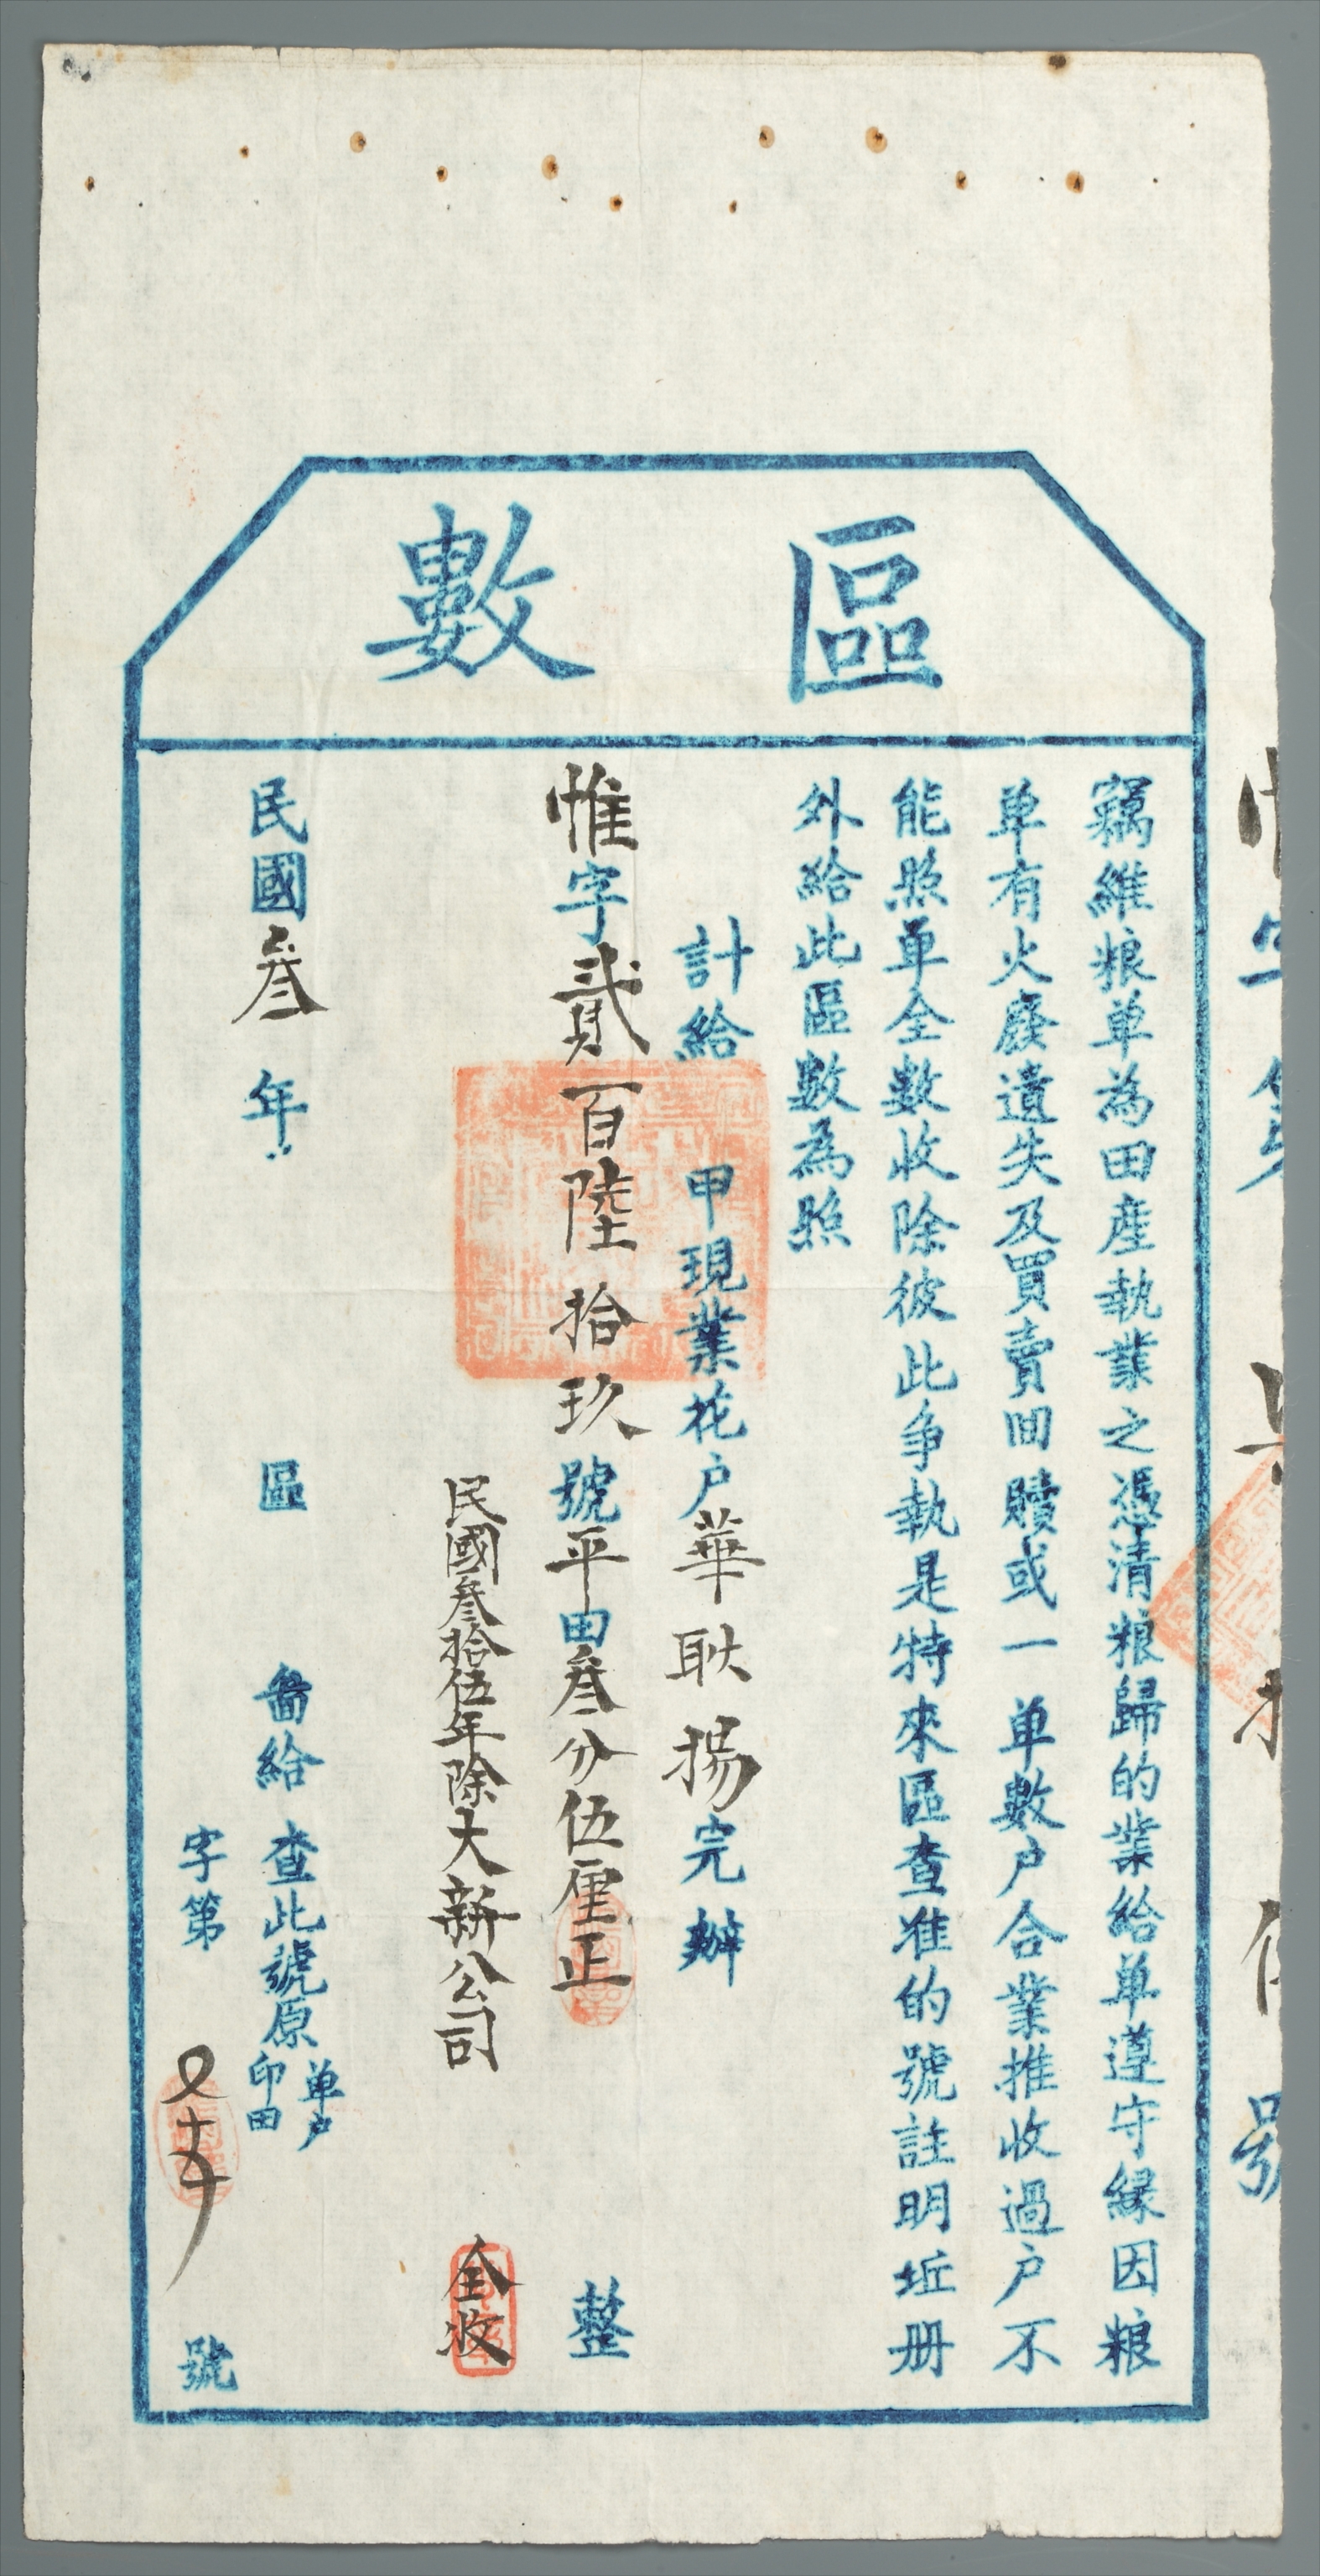 區數
竊維粮单為田產執業之憑清粮歸的業給单遵守緣因粮
单有火廢遺失及買賣回贖或一单數户合業推收過户不
能照单全數收除彼此争執是特來區查准的號註明坵册
外給此區數為照
計給 甲現業花户華耿揚完辦
惟字貳百陸拾玖號平田叁分伍厘正 整
民國叁拾伍年除大新公司 全收
民國叁年 區 啚給 查此號原单户印田
字第 號